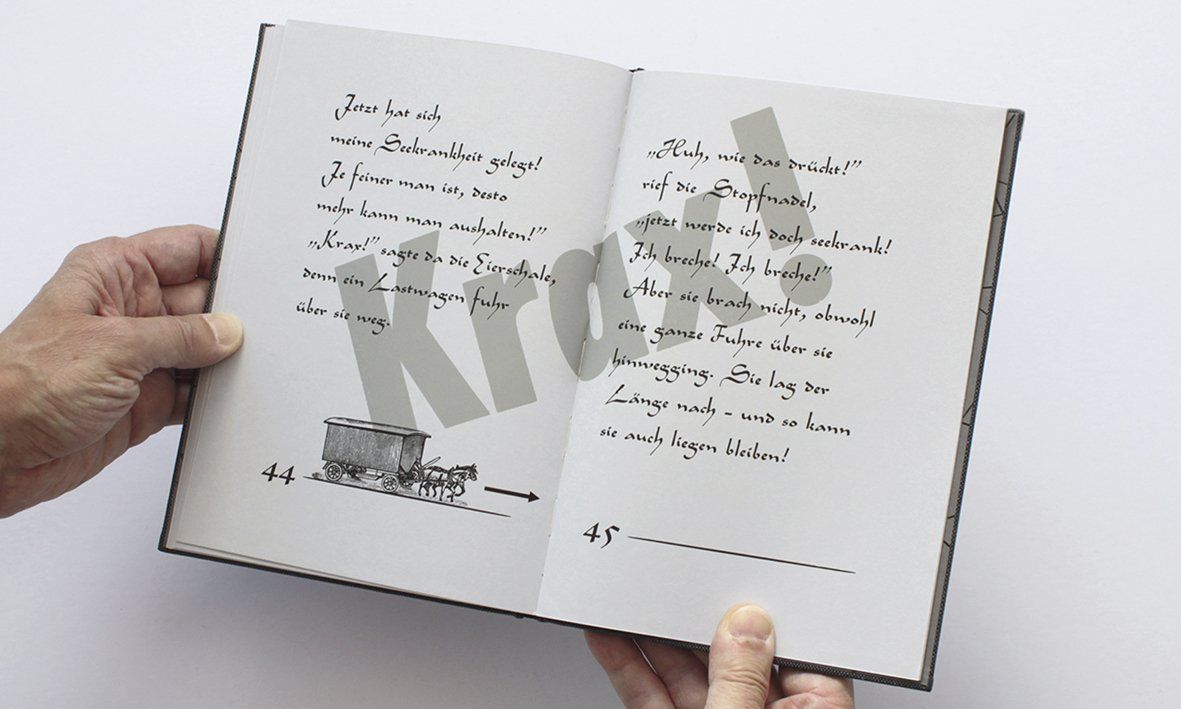 Jetzt hat sich
meine Seekrankheit gelegt!
Je feiner man ist, desto
mehr kann man aushalten!”
„Krax!” sagte da die Eierschale,
denn ein Lastwagen fuhr
über sie weg.
44
Krax!
„Huh, wie das drückt!”
rief die Stopfnadel,
„jetzt werde ich doch seekrank!
Ich breche! Ich breche!”
Aber sie brach nicht, obwohl
eine ganze Fuhre über sie
hinwegging. Sie lag der
Länge nach - und so kann
sie auch liegen bleiben!
45